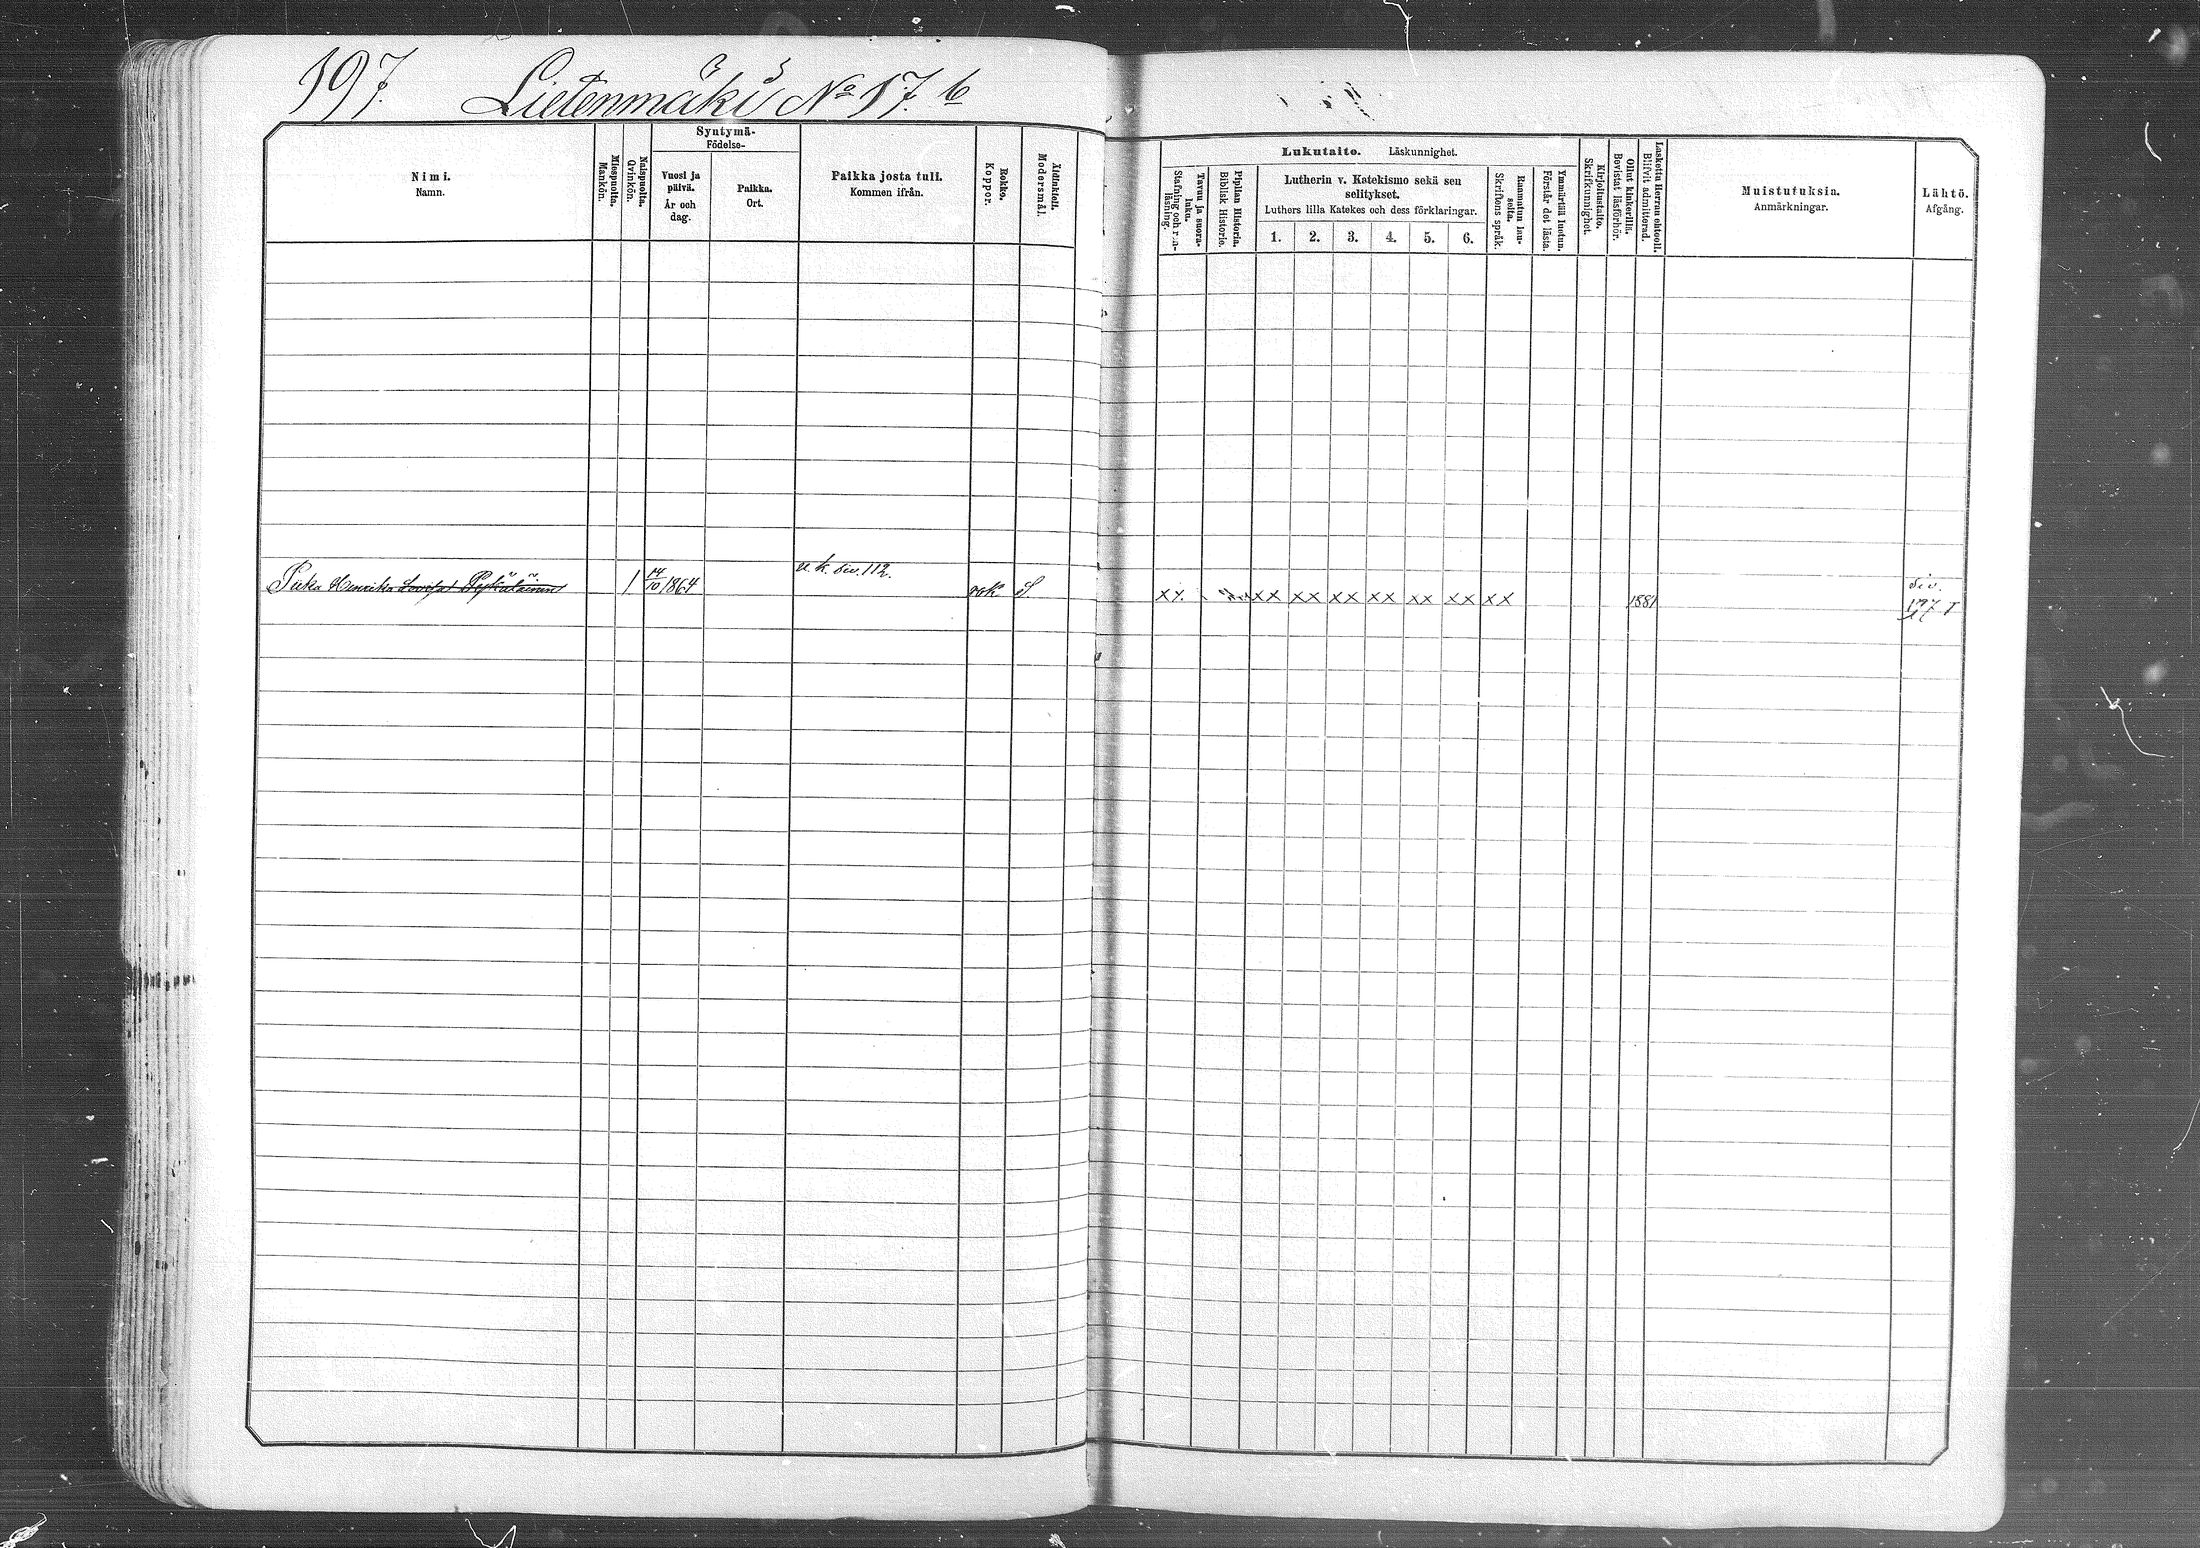 197.
Lietenmäki No 17. b
Nimi.
Namn.
Miespuolia.
Mankön.
Naispuolia.
Qvinkön.
Syntymä-
Födelse-
Vuosi ja
päivä.
År och
dag.
Paikka.
Ort.
Paikka josta tuli.
Kommen ifrån.
Rokko.
Koppor.
Äidinkieli.
Modersmål.
Lukutaito. Läskunnighet.
Tavuu ja suora-
luku.
Stafning och ren-
läsning.
Piplian Historia.
Biblisk Historie.
Lutherin v. Katekismo sekä sen
selitykset.
Luthers lilla Katekes och dess förklaringar.
1. 2. 3. 4. 5. 6.
Raamatun lau-
seita.
Skriftens språk.
Ymmärtää luetun.
Förstår det lästa.
Kirjoitustaito.
Skrifkunnighet.
Ollut kinkerillä.
Bevistat läsförhör.
Laskettu Herran ehtooll.
Blifvit admitterad.
Muistutuksia.
Anmärkningar.
Lähtö.
Afgång.
Piika Henrika Lovisa 1 14/10 1864 u. k. siv. 112. rok S. XX. XX XX XX XX XX XX XX 1881 siv.
197